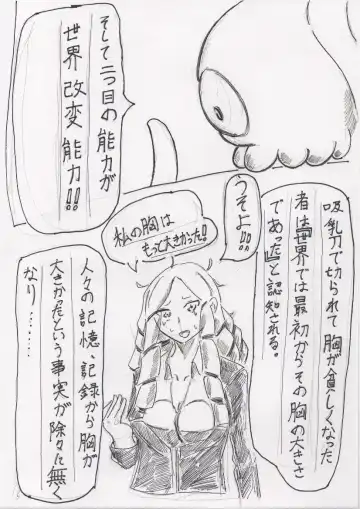 そして二つ目の能力が
世界改変能力!!
吸乳刀で切られて胸が貧しくなった
者は『世界では最初からその胸の大きさ
であった』と認知される。
うそよ!!
私の胸は
もっと大きかった!
人々の記憶、記録から胸が
大きかったという事実が除々に無く
なり……